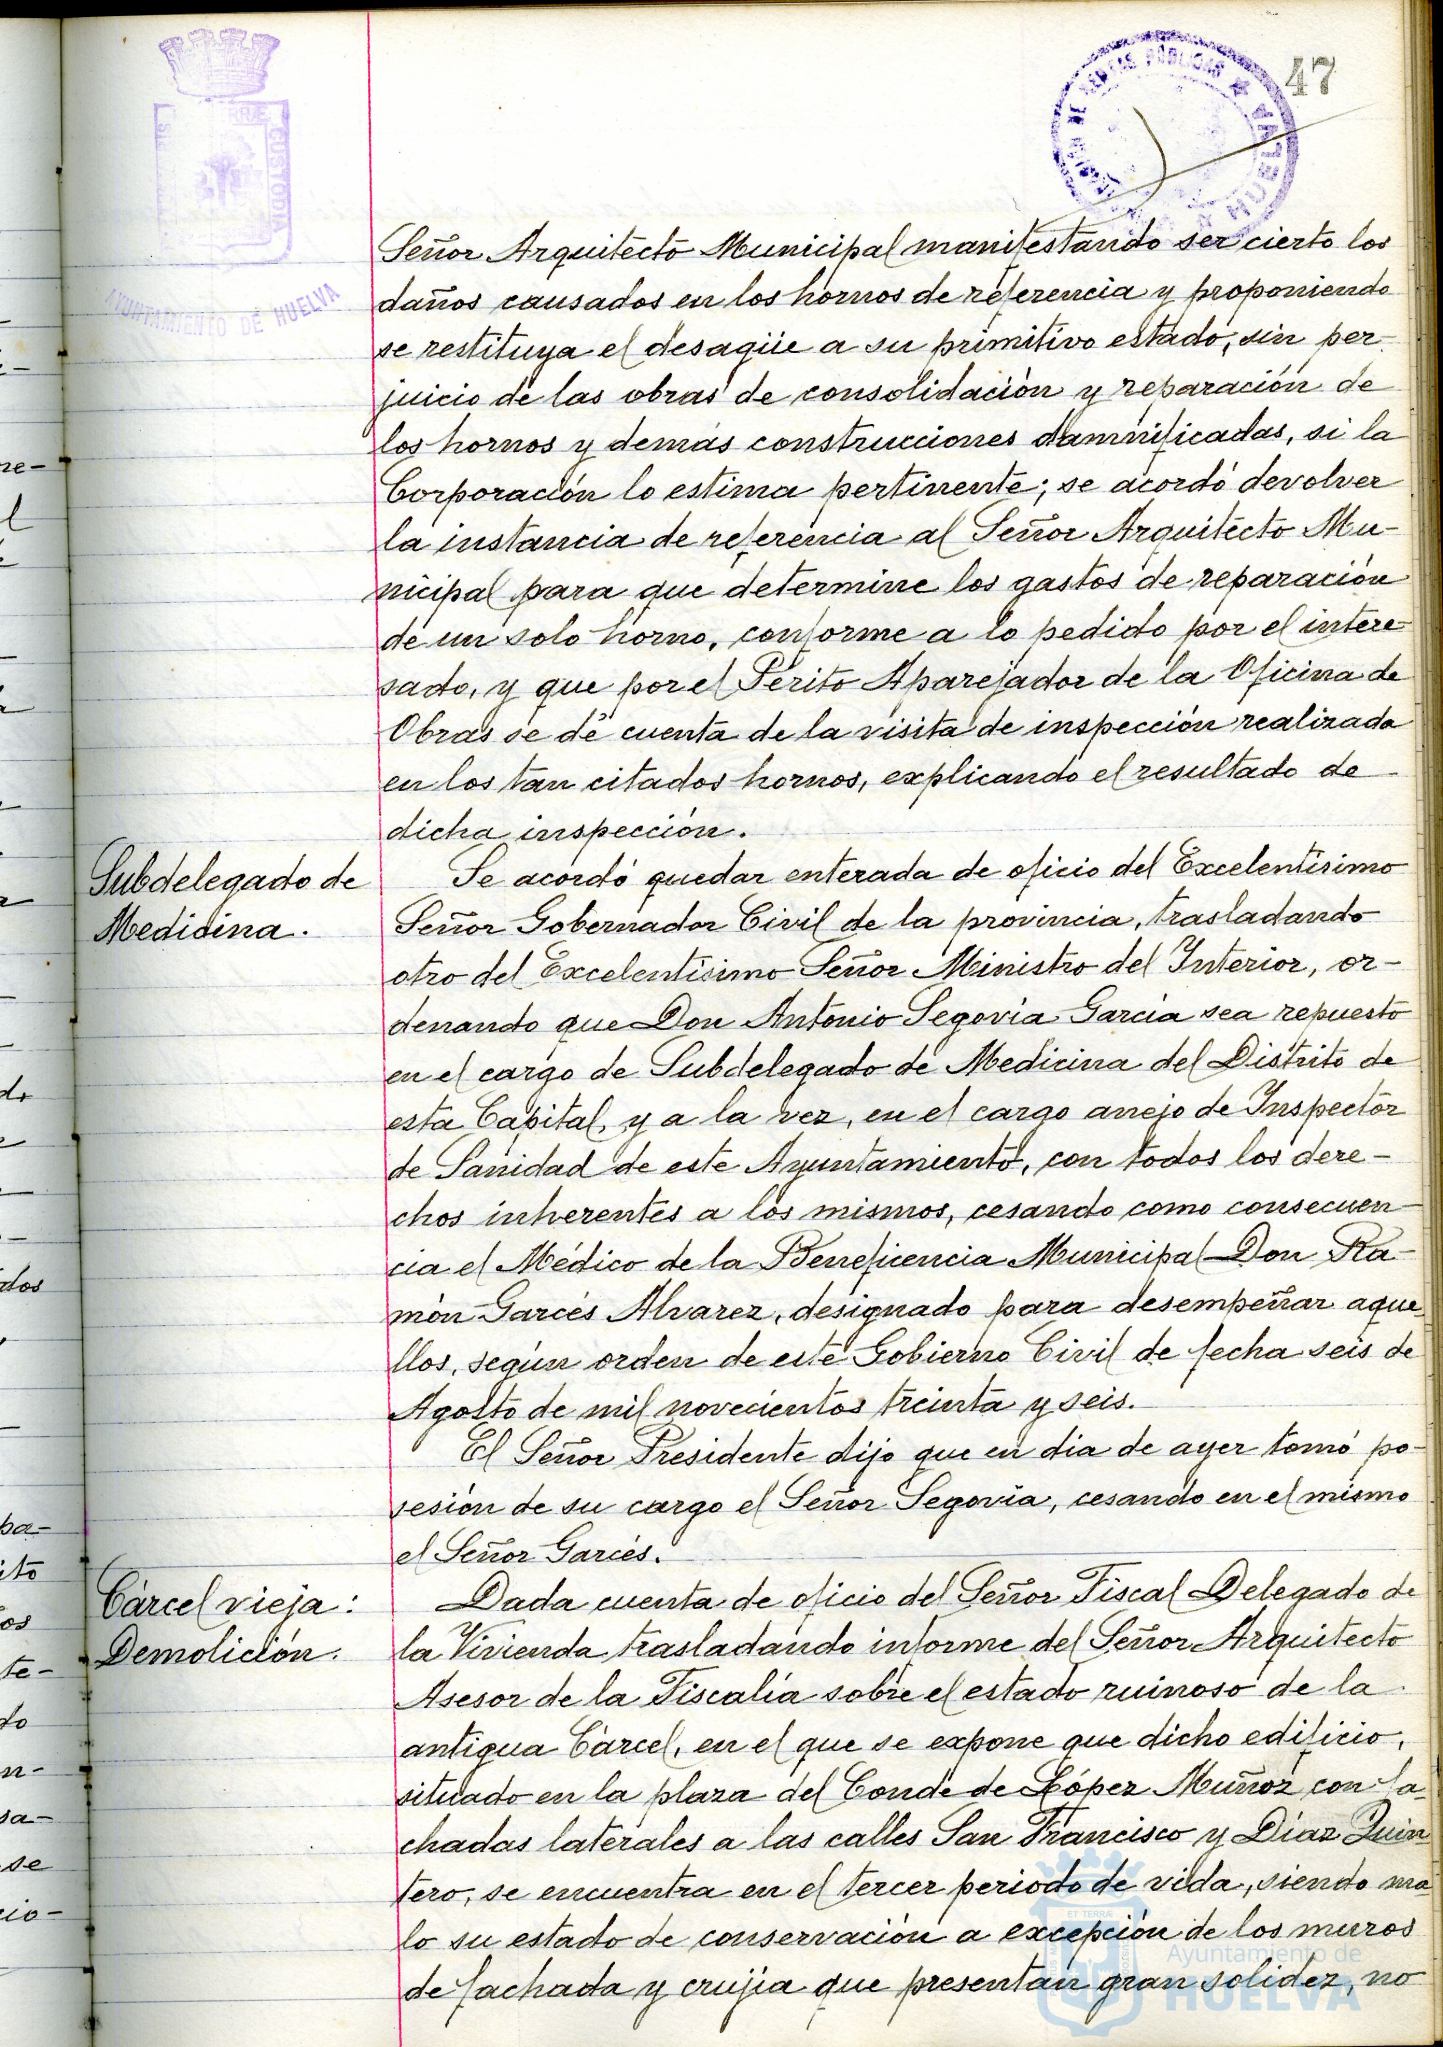 47
AYUNTAMIENTO DE HUELVA
Señor Arquitecto Municipal manifestando ser cierto los
daños causados en los hornos de referencia y proponiendo
se restituya el desagüe a su primitivo estado, sin per-
juicio de las obras de consolidación y reparación de
los hornos y demás construcciones damnificadas, si la
Corporación lo estima pertinente; se acordó devolver
la instancia de referencia al Señor Arquitecto Mu-
nicipal para que determine los gastos de reparación
de un solo horno, conforme a lo pedido por el intere-
sado, y que por el Périto Aparejador de la Oficina de
Obras se dé cuenta de la visita de inspección realizada
en los tan citados hornos, explicando el resultado de
dicha inspección.
Subdelegado de
Medicina.
Se acordó quedar enterada de oficio del Excelentísimo
Señor Gobernador Civil de la provincia, trasladando
otro del Excelentísimo Señor Ministro del Interior, or-
denando que Don Antonio Segovia García sea repuesto
en el cargo de Subdelegado de Medicina del Distrito de
esta Capital, y a la vez, en el cargo anejo de Inspector
de Sanidad de este Ayuntamiento, con todos los dere-
chos inherentes a los mismos, cesando como consecuen-
cia el Médico de la Beneficencia Municipal Don Ra-
món Garcés Alvarez, designado para desempeñar aque-
llos, según orden de este Gobierno Civil de fecha seis de
Agosto de mil novecientos treinta y seis.
El Señor Presidente dijo que en dia de ayer tomó po-
sesión de su cargo el Señor Segovia, cesando en el mismo
el Señor Garcés.
Cárcel vieja:
Demolición.
Dada cuenta de oficio del Señor Fiscal Delegado de
la Vivienda trasladando informe del Señor Arquitecto
Asesor de la Fiscalía sobre el estado ruinoso de la
antigua Cárcel, en el que se expone que dicho edificio,
situado en la plaza del Conde de López Muñoz con fa-
chadas laterales a las calles San Francisco y Díaz Quin-
tero, se encuentra en el tercer periodo de vida, siendo ma-
lo su estado de conservación a excepción de los muros
de fachada y crujía que presentan gran solidez, no
Ayuntamiento de
HUELVA